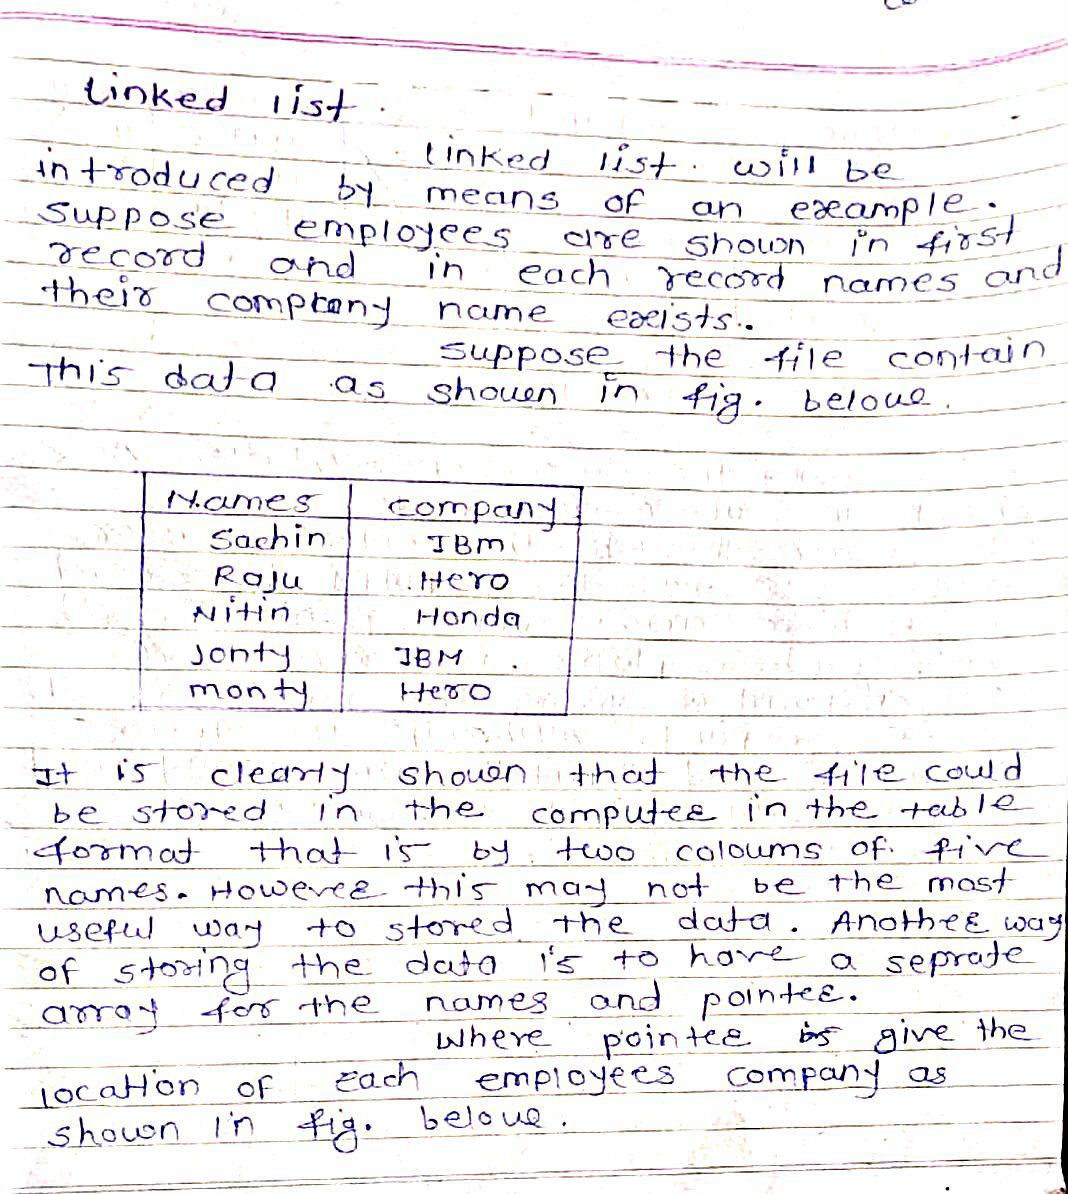 Linked list.
Linked list. will be
introduced by means of an example.
suppose employees are shown in first
record and in each record names and
their company name exists..
suppose the file contain
This data as shown in fig. below.
Names company
Sachin IBm
Raju Hero
Nitin Honda
Jonty IBM
monty Hero
It is clearly shown that the file could
be stored in the computer in the table
format that is by two coloums of five
names. However this may not be the most
useful way to stored the data. Another way
of storing the data is to have a seprate
array for the names and pointer.
Where pointer is give the
location of Each employees company as
shown in fig. below.